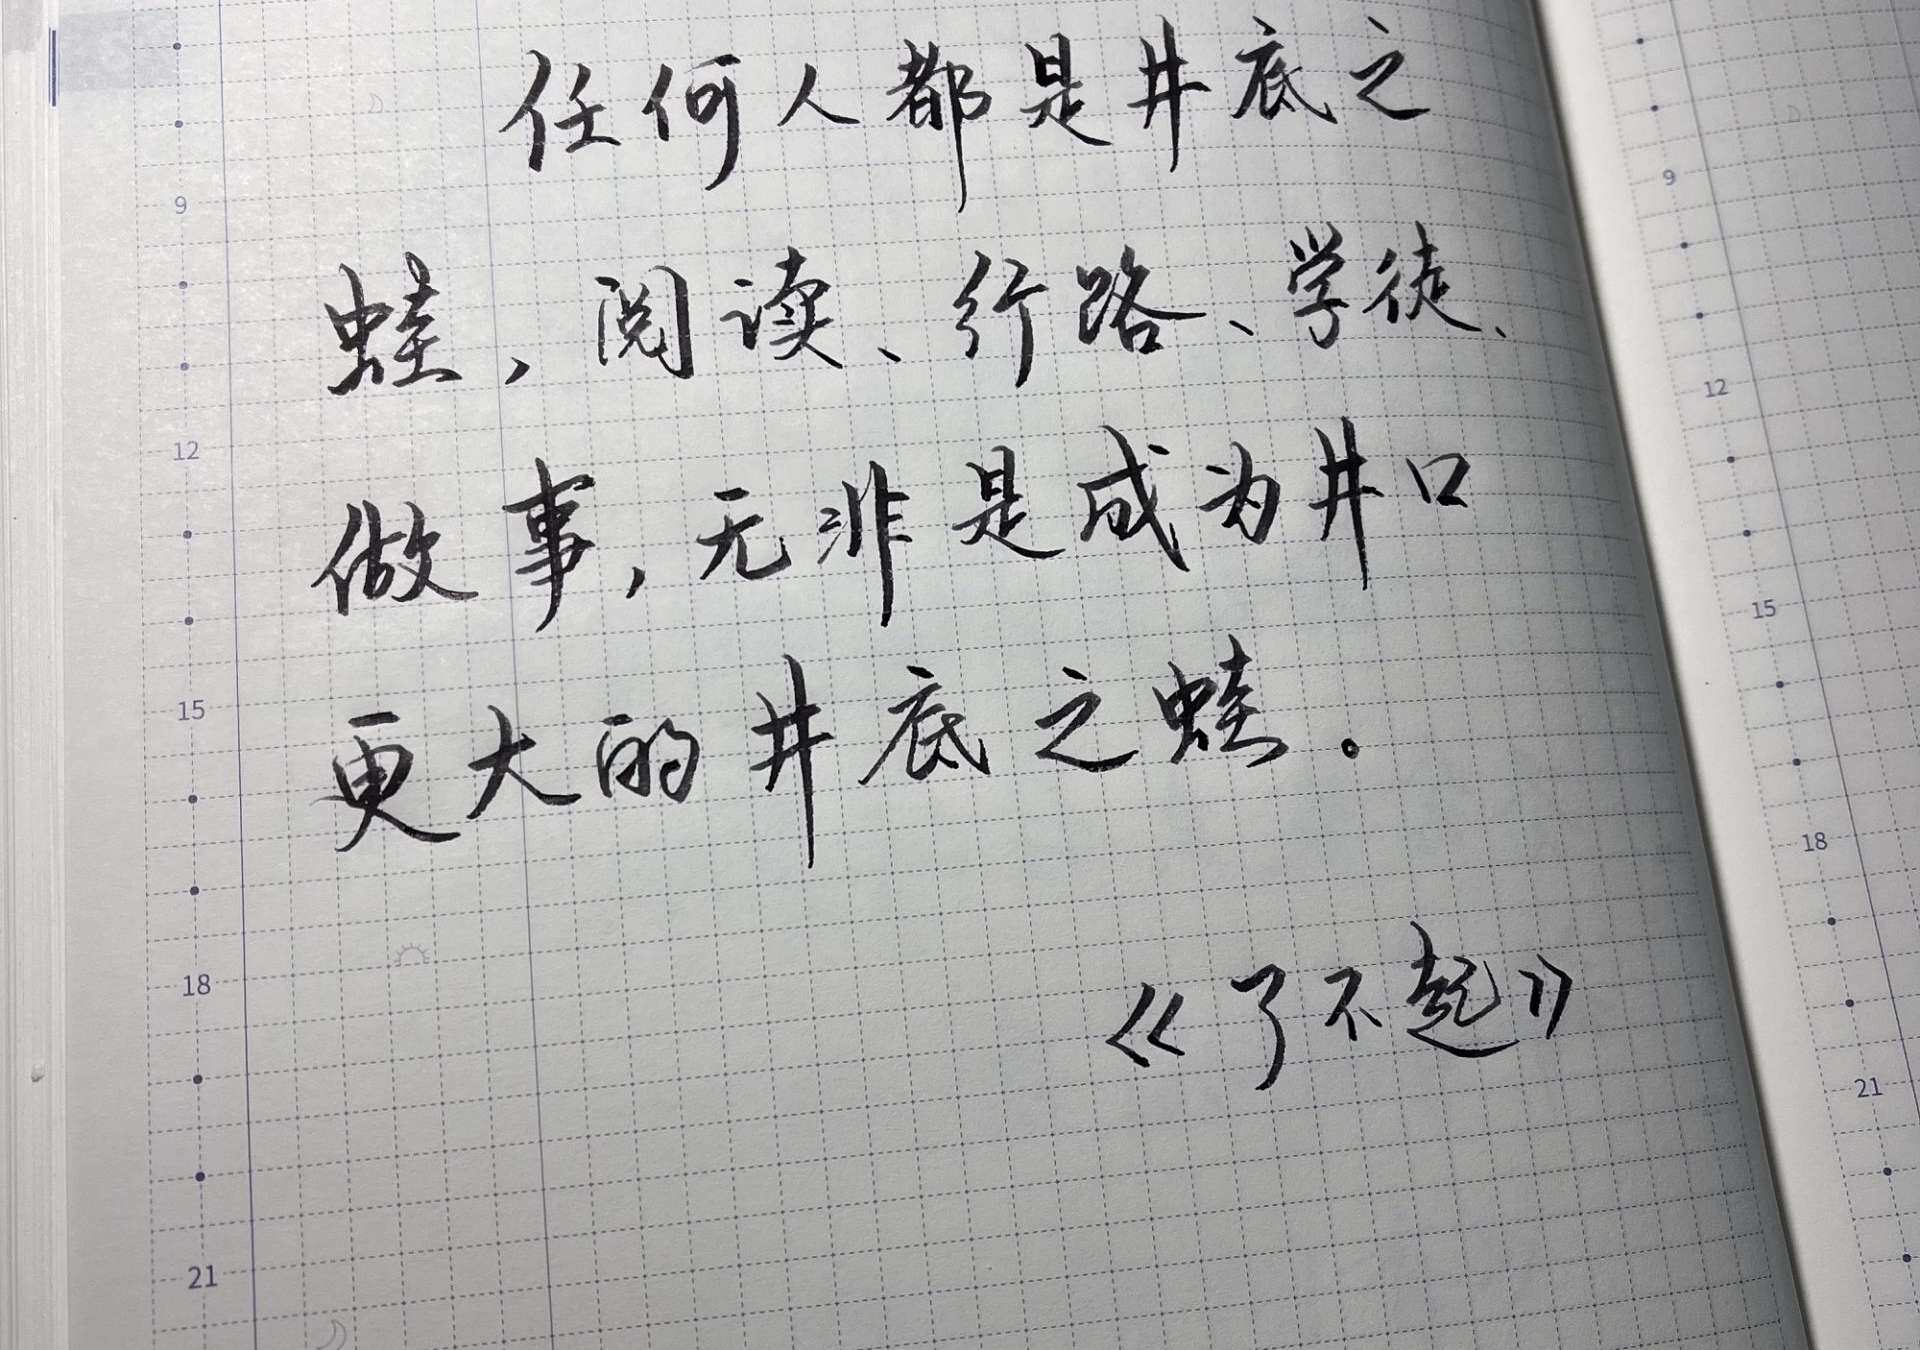 任何人都是井底之
蛙，阅读、行路、学徒、
做事，无非是成为井口
更大的井底之蛙。
《了不起》
9
12
15
18
21
9
12
15
18
21